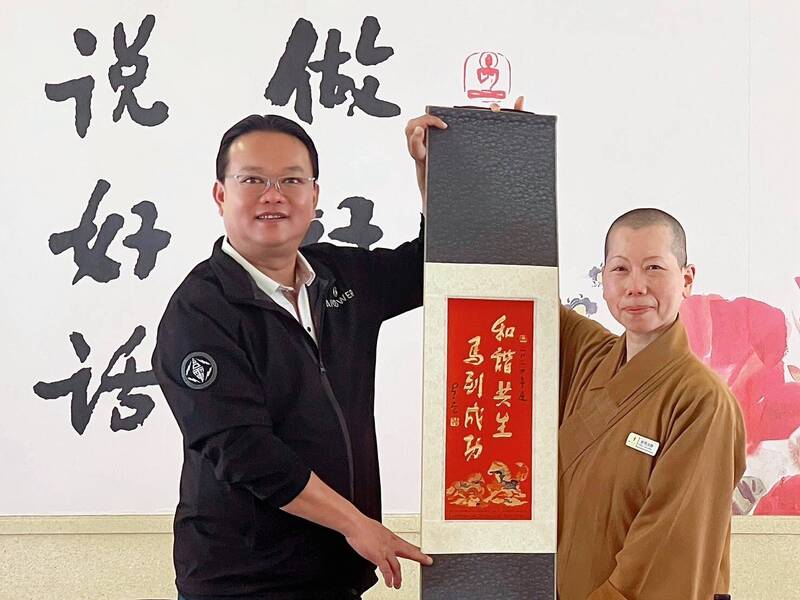 做好
说好话
和谐共生
马到成功